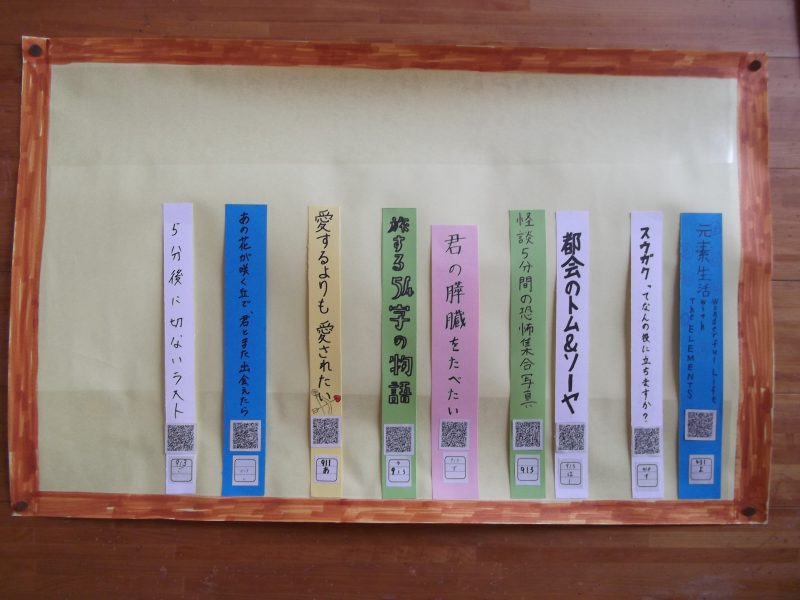 元素生活
Wonderful Life
with
The ELEMENTS
スウガクってなんの役に立ちますか?
都会のトム&ソーヤ
913
は
1
怪談5分間の恐怖集合写真
913
君の膵臓をたべたい
旅する54字の物語
913
愛するよりも愛されたい
911
あ
あの花が咲く丘で、君とまた出会えたら
5分後に切ないラスト
913